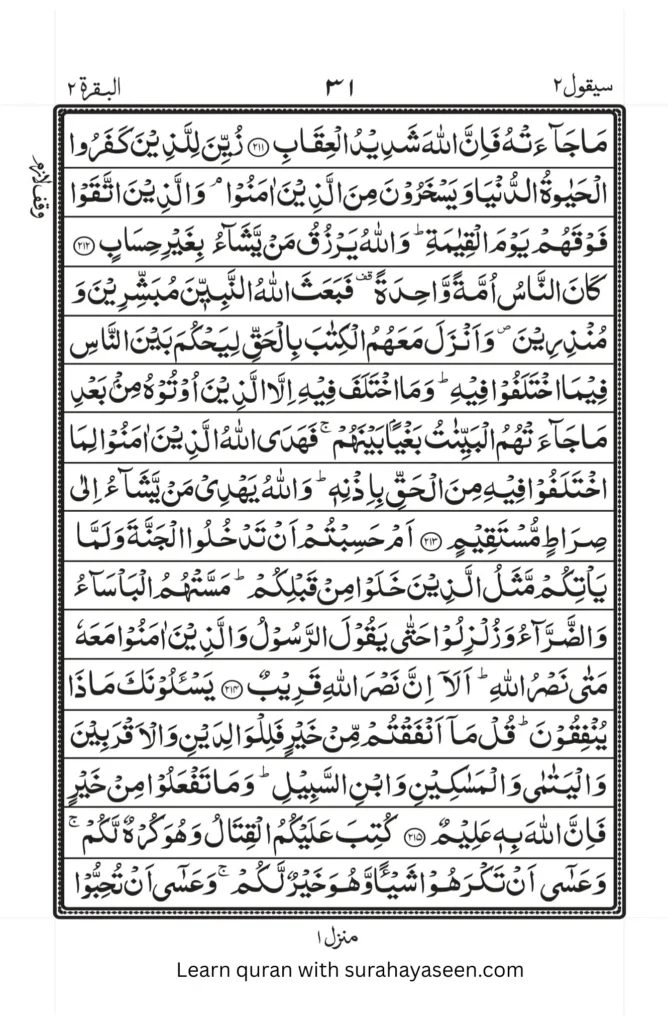 سيقول٢ ٣١ البقرة ٢
مَا جَآءَتْهُ فَاِنَّ اللّٰهَ شَدِيْدُ الْعِقَابِ ﴿٢١١﴾ زُيِّنَ لِلَّذِيْنَ كَفَرُوا
الْحَيٰوةُ الدُّنْيَا وَيَسْخَرُوْنَ مِنَ الَّذِيْنَ اٰمَنُوْا ۘ وَالَّذِيْنَ اتَّقَوْا
وقف لازم
فَوْقَهُمْ يَوْمَ الْقِيٰمَةِ ؕ وَاللّٰهُ يَرْزُقُ مَنْ يَّشَآءُ بِغَيْرِ حِسَابٍ ﴿٢١٢﴾
كَانَ النَّاسُ اُمَّةً وَّاحِدَةً ۟قف فَبَعَثَ اللّٰهُ النَّبِيّٖنَ مُبَشِّرِيْنَ وَ
مُنْذِرِيْنَ ۪ وَاَنْزَلَ مَعَهُمُ الْكِتٰبَ بِالْحَقِّ لِيَحْكُمَ بَيْنَ النَّاسِ
فِيْمَا اخْتَلَفُوْا فِيْهِ ؕ وَمَا اخْتَلَفَ فِيْهِ اِلَّا الَّذِيْنَ اُوْتُوْهُ مِنْۢ بَعْدِ
مَا جَآءَتْهُمُ الْبَيِّنٰتُ بَغْيًۢا بَيْنَهُمْ ۚ فَهَدَى اللّٰهُ الَّذِيْنَ اٰمَنُوْا لِمَا
اخْتَلَفُوْا فِيْهِ مِنَ الْحَقِّ بِاِذْنِهٖ ؕ وَاللّٰهُ يَهْدِيْ مَنْ يَّشَآءُ اِلٰى
صِرَاطٍ مُّسْتَقِيْمٍ ﴿٢١٣﴾ اَمْ حَسِبْتُمْ اَنْ تَدْخُلُوا الْجَنَّةَ وَلَمَّا
يَاْتِكُمْ مَّثَلُ الَّذِيْنَ خَلَوْا مِنْ قَبْلِكُمْ ؕ مَسَّتْهُمُ الْبَاْسَآءُ
وَالضَّرَّآءُ وَزُلْزِلُوْا حَتّٰى يَقُوْلَ الرَّسُوْلُ وَالَّذِيْنَ اٰمَنُوْا مَعَهٗ
مَتٰى نَصْرُ اللّٰهِ ؕ اَلَاۤ اِنَّ نَصْرَ اللّٰهِ قَرِيْبٌ ﴿٢١٤﴾ يَسْـَٔلُوْنَكَ مَاذَا
يُنْفِقُوْنَ ؕ قُلْ مَاۤ اَنْفَقْتُمْ مِّنْ خَيْرٍ فَلِلْوَالِدَيْنِ وَالْاَقْرَبِيْنَ
وَالْيَتٰمٰى وَالْمَسٰكِيْنِ وَابْنِ السَّبِيْلِ ؕ وَمَا تَفْعَلُوْا مِنْ خَيْرٍ
فَاِنَّ اللّٰهَ بِهٖ عَلِيْمٌ ﴿٢١٥﴾ كُتِبَ عَلَيْكُمُ الْقِتَالُ وَهُوَ كُرْهٌ لَّكُمْ ۚ
وَعَسٰى اَنْ تَكْرَهُوْا شَيْـًٔا وَّهُوَ خَيْرٌ لَّكُمْ ۚ وَعَسٰى اَنْ تُحِبُّوْا
منزل ١
Learn quran with surahayaseen.com